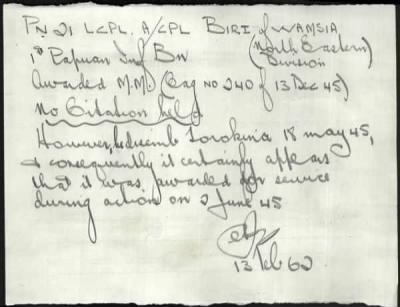 PN 21 LCPL. A/CPL BIRI of WAMSIA
1st Papuan Inf Bn (North Eastern Division)
Awarded M.M. (Gag NO 240 of 13 Dec 45)
No Citation held
However, Torokina 18 May 45,
& consequently it certainly appears
that it was awarded for service
during action on 2 June 45
13 Feb 62